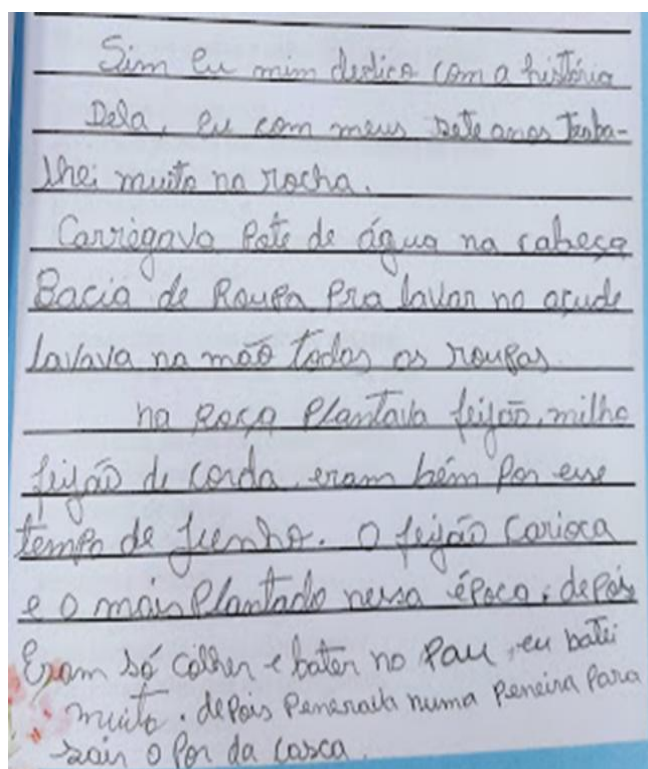 Sim eu mim dedico com a história
Dela, eu com meus sete anos traba-
lhei muito na rocha.
Carregava Pote de água na cabeça
Bacia de Roupa Pra lavar no açude
lavava na mão todas as roupas.
na Roça Plantava feijão, milho
feijão de corda, eram bém Por esse
tempo de Junho. O feijão Carioca
e o mais Plantado nessa época, depois
Eram só colher e bater no Pau, eu batei
muito. depois Penerava numa Peneira Para
sair o Por da casca.